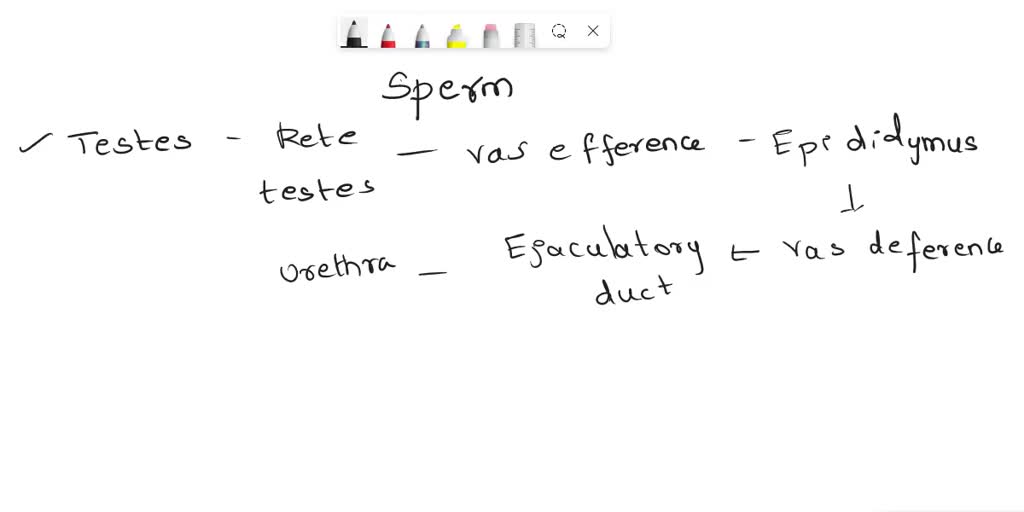 Sperm
✓ Testes - Rete — vas efference - Epididymus
testes
↓
urethra — Ejaculatory ← vas deference
duct